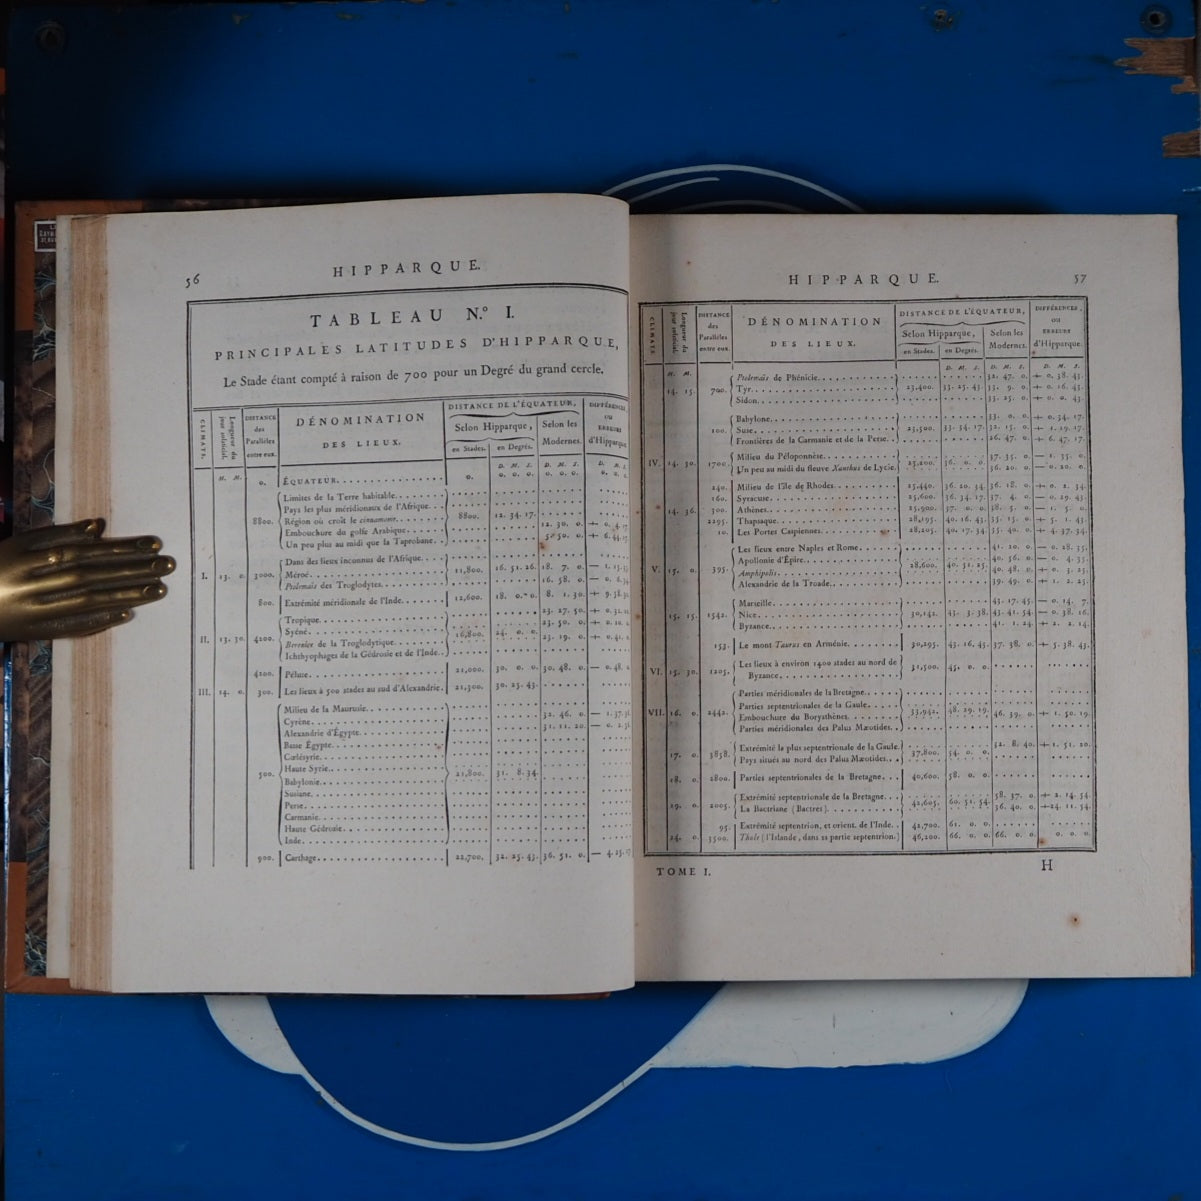 56
HIPPARQUE.
TABLEAU N.º I.
PRINCIPALES LATITUDES D'HIPPARQUE,
Le Stade étant compté à raison de 700 pour un Degré du grand cercle.
CLIMATS. Longueur du jour solsticial. DISTANCE des Parallèles entre eux. DÉNOMINATION DES LIEUX. DISTANCE DE L'ÉQUATEUR, Selon Hipparque, en Stades. en Degrés. Selon les Modernes. DIFFÉRENCES, OU ERREURS d'Hipparque.
H. M. D. M. S. D. M. S. D. M. S.
0. ÉQUATEUR. 0. 0. 0. 0. 0. 0. 0.
Limites de la Terre habitable.
Pays les plus méridionaux de l'Afrique.
8800. Région où croît le cinnamome. 8800. 12. 34. 17.
Embouchure du golfe Arabique. 12. 30. 0.
Un peu plus au midi que la Taprobane.
Dans des lieux inconnus de l'Afrique.
I. 13. 0. 3000. Méroé. 11,800. 16. 51. 26. 18. 7. 0.
Ptolemaïs des Troglodytes. 16. 58. 0.
800. Extrémité méridionale de l'Inde. 12,600. 18. 0. 0. 8. 1. 30.
Tropique. 23. 27. 50.
Syéné. 23. 50. 0.
II. 13. 30. 4200. Bérénice de la Troglodytique. 16,800. 24. 0. 0. 23. 19. 0.
Ichthyophages de la Gédrosie et de l'Inde.
4200. Péluse. 21,000. 30. 0. 0. 30. 48. 0.
III. 14. 0. 300. Les lieux à 500 stades au sud d'Alexandrie. 21,300. 30. 25. 43.
Milieu de la Maurusie.
Cyrène. 32. 46. 0.
Alexandrie d'Égypte. 31. 11. 20.
Basse Égypte.
Cœlésyrie.
500. Haute Syrie. 21,800. 31. 8. 34.
Babylonie.
Susiane.
Perse.
Carmanie.
Haute Gédrosie.
Inde.
900. Carthage. 22,700. 32. 25. 43. 36. 51. 0.
HIPPARQUE. 57
CLIMATS. Longueur du jour solsticial. DISTANCE des Parallèles entre eux. DÉNOMINATION DES LIEUX. DISTANCE DE L'ÉQUATEUR, Selon Hipparque, en Stades. en Degrés. Selon les Modernes. DIFFÉRENCES, OU ERREURS d'Hipparque.
H. M. D. M. S. D. M. S. D. M. S.
Ptolemaïs de Phénicie. 32. 47. 0. + 0. 38. 43.
14. 15. 700. Tyr. 23,400. 33. 25. 43. 33. 9. 0. + 0. 16. 43.
Sidon. 33. 25. 0. + 0. 0. 43.
Babylone. 33. 0. 0. + 0. 34. 17.
100. Suse. 23,500. 33. 34. 17. 32. 15. 0. + 1. 19. 17.
Frontières de la Carmanie et de la Perse. 26. 47. 0. + 6. 47. 17.
IV. 14. 30. 1700. Milieu du Péloponnèse. 25,200. 36. 0. 0. 37. 35. 0. — 1. 35. 0.
Un peu au midi du fleuve Xanthus de Lycie. 36. 20. 0. — 0. 20. 0.
240. Milieu de l'île de Rhodes. 25,440. 36. 20. 34. 36. 18. 0. + 0. 2. 34.
160. Syracuse. 25,600. 36. 34. 17. 37. 4. 0. — 0. 29. 43.
14. 36. 300. Athènes. 25,900. 37. 0. 0. 38. 5. 0. — 1. 5. 0.
2295. Thapsaque. 28,195. 40. 16. 43. 35. 15. 0. + 5. 1. 43.
10. Les Portes Caspiennes. 28,205. 40. 17. 34. 35. 40. 0. + 4. 37. 34.
Les lieux entre Naples et Rome. 41. 20. 0. — 0. 28. 35.
V. 15. 0. 395. Apollonie d'Épire. 28,600. 40. 51. 25. 40. 56. 0. — 0. 4. 35.
Amphipolis. 40. 48. 0. + 0. 3. 25.
Alexandrie de la Troade. 39. 49. 0. + 1. 2. 25.
Marseille. 43. 17. 45. — 0. 14. 7.
15. 15. 1542. Nice. 30,142. 43. 3. 38. 43. 41. 54. — 0. 38. 16.
Byzance. 41. 1. 24. + 2. 2. 14.
153. Le mont Taurus en Arménie. 30,295. 43. 16. 43. 37. 38. 0. + 5. 38. 43.
VI. 15. 30. 1205. Les lieux à environ 1400 stades au nord de Byzance. 31,500. 45. 0. 0.
Parties méridionales de la Bretagne.
Parties septentrionales de la Gaule.
VII. 16. 0. 2442. Embouchure du Borysthènes. 33,942. 48. 29. 19. 46. 39. 0. + 1. 50. 19.
Parties méridionales des Palus Mæotides.
17. 0. 3858. Extrémité la plus septentrionale de la Gaule. 37,800. 54. 0. 0. 52. 8. 40. + 1. 51. 20.
Pays situés au nord des Palus Mæotides.
18. 0. 2800. Parties septentrionales de la Bretagne. 40,600. 58. 0. 0.
19. 0. 2005. Extrémité septentrionale de la Bretagne. 42,605. 60. 51. 54. 58. 37. 0. + 2. 14. 54.
La Bactriane (Bactres). 36. 40. 0. + 24. 11. 54.
95. Extrémité septentrion. et orient. de l'Inde. 42,700. 61. 0. 0.
24. 0. 3500. Thule (l'Islande, dans sa partie septentrion.) 46,200. 66. 0. 0. 66. 0. 0. 0. 0. 0.
TOME I. H